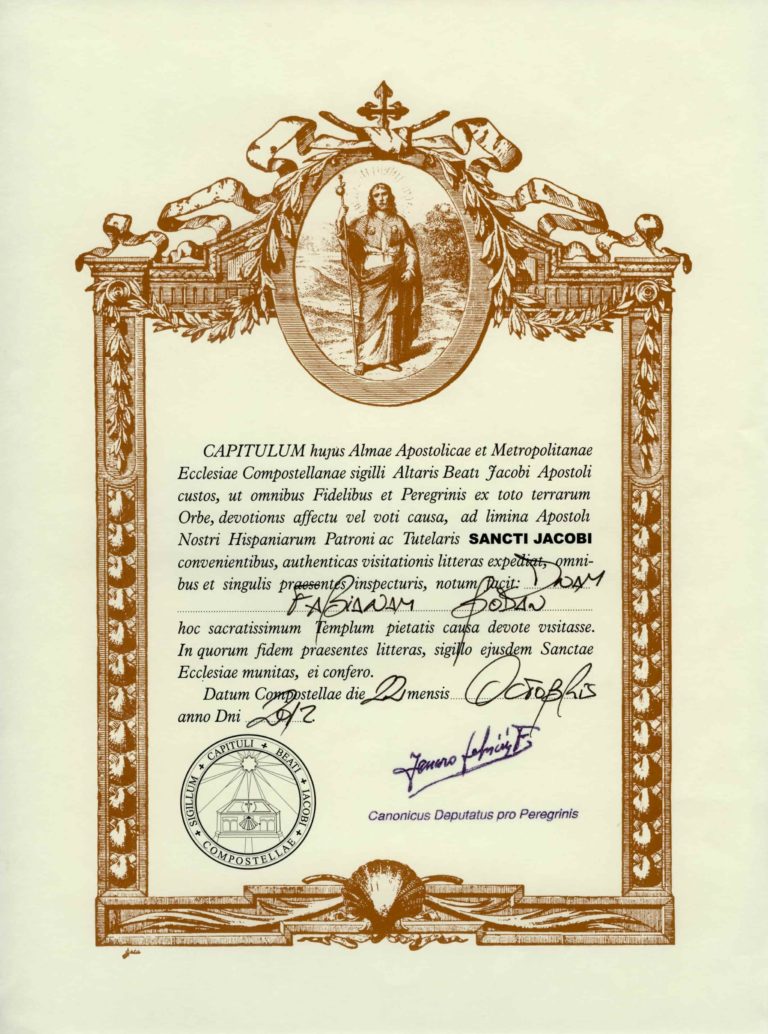 CAPITULUM hujus Almae Apostolicae et Metropolitanae
Ecclesiae Compostellanae sigilli Altaris Beati Jacobi Apostoli
custos, ut omnibus Fidelibus et Peregrinis ex toto terrarum
Orbe, devotionis affectu vel voti causa, ad limina Apostoli
Nostri Hispaniarum Patroni ac Tutelaris SANCTI JACOBI
convenientibus, authenticas visitationis litteras expediat, omni-
bus et singulis praesentes inspecturis, notum facit: Dnam
FABIANAM BODAN
hoc sacratissimum Templum pietatis causa devote visitasse.
In quorum fidem praesentes litteras, sigillo ejusdem Sanctae
Ecclesiae munitas, ei confero.
Datum Compostellae die 22 mensis OCTOBRIS
anno Dni 2012
SIGILLUM + CAPITULI + BEATI + IACOBI + COMPOSTELLAE +
Canonicus Deputatus pro Peregrinis